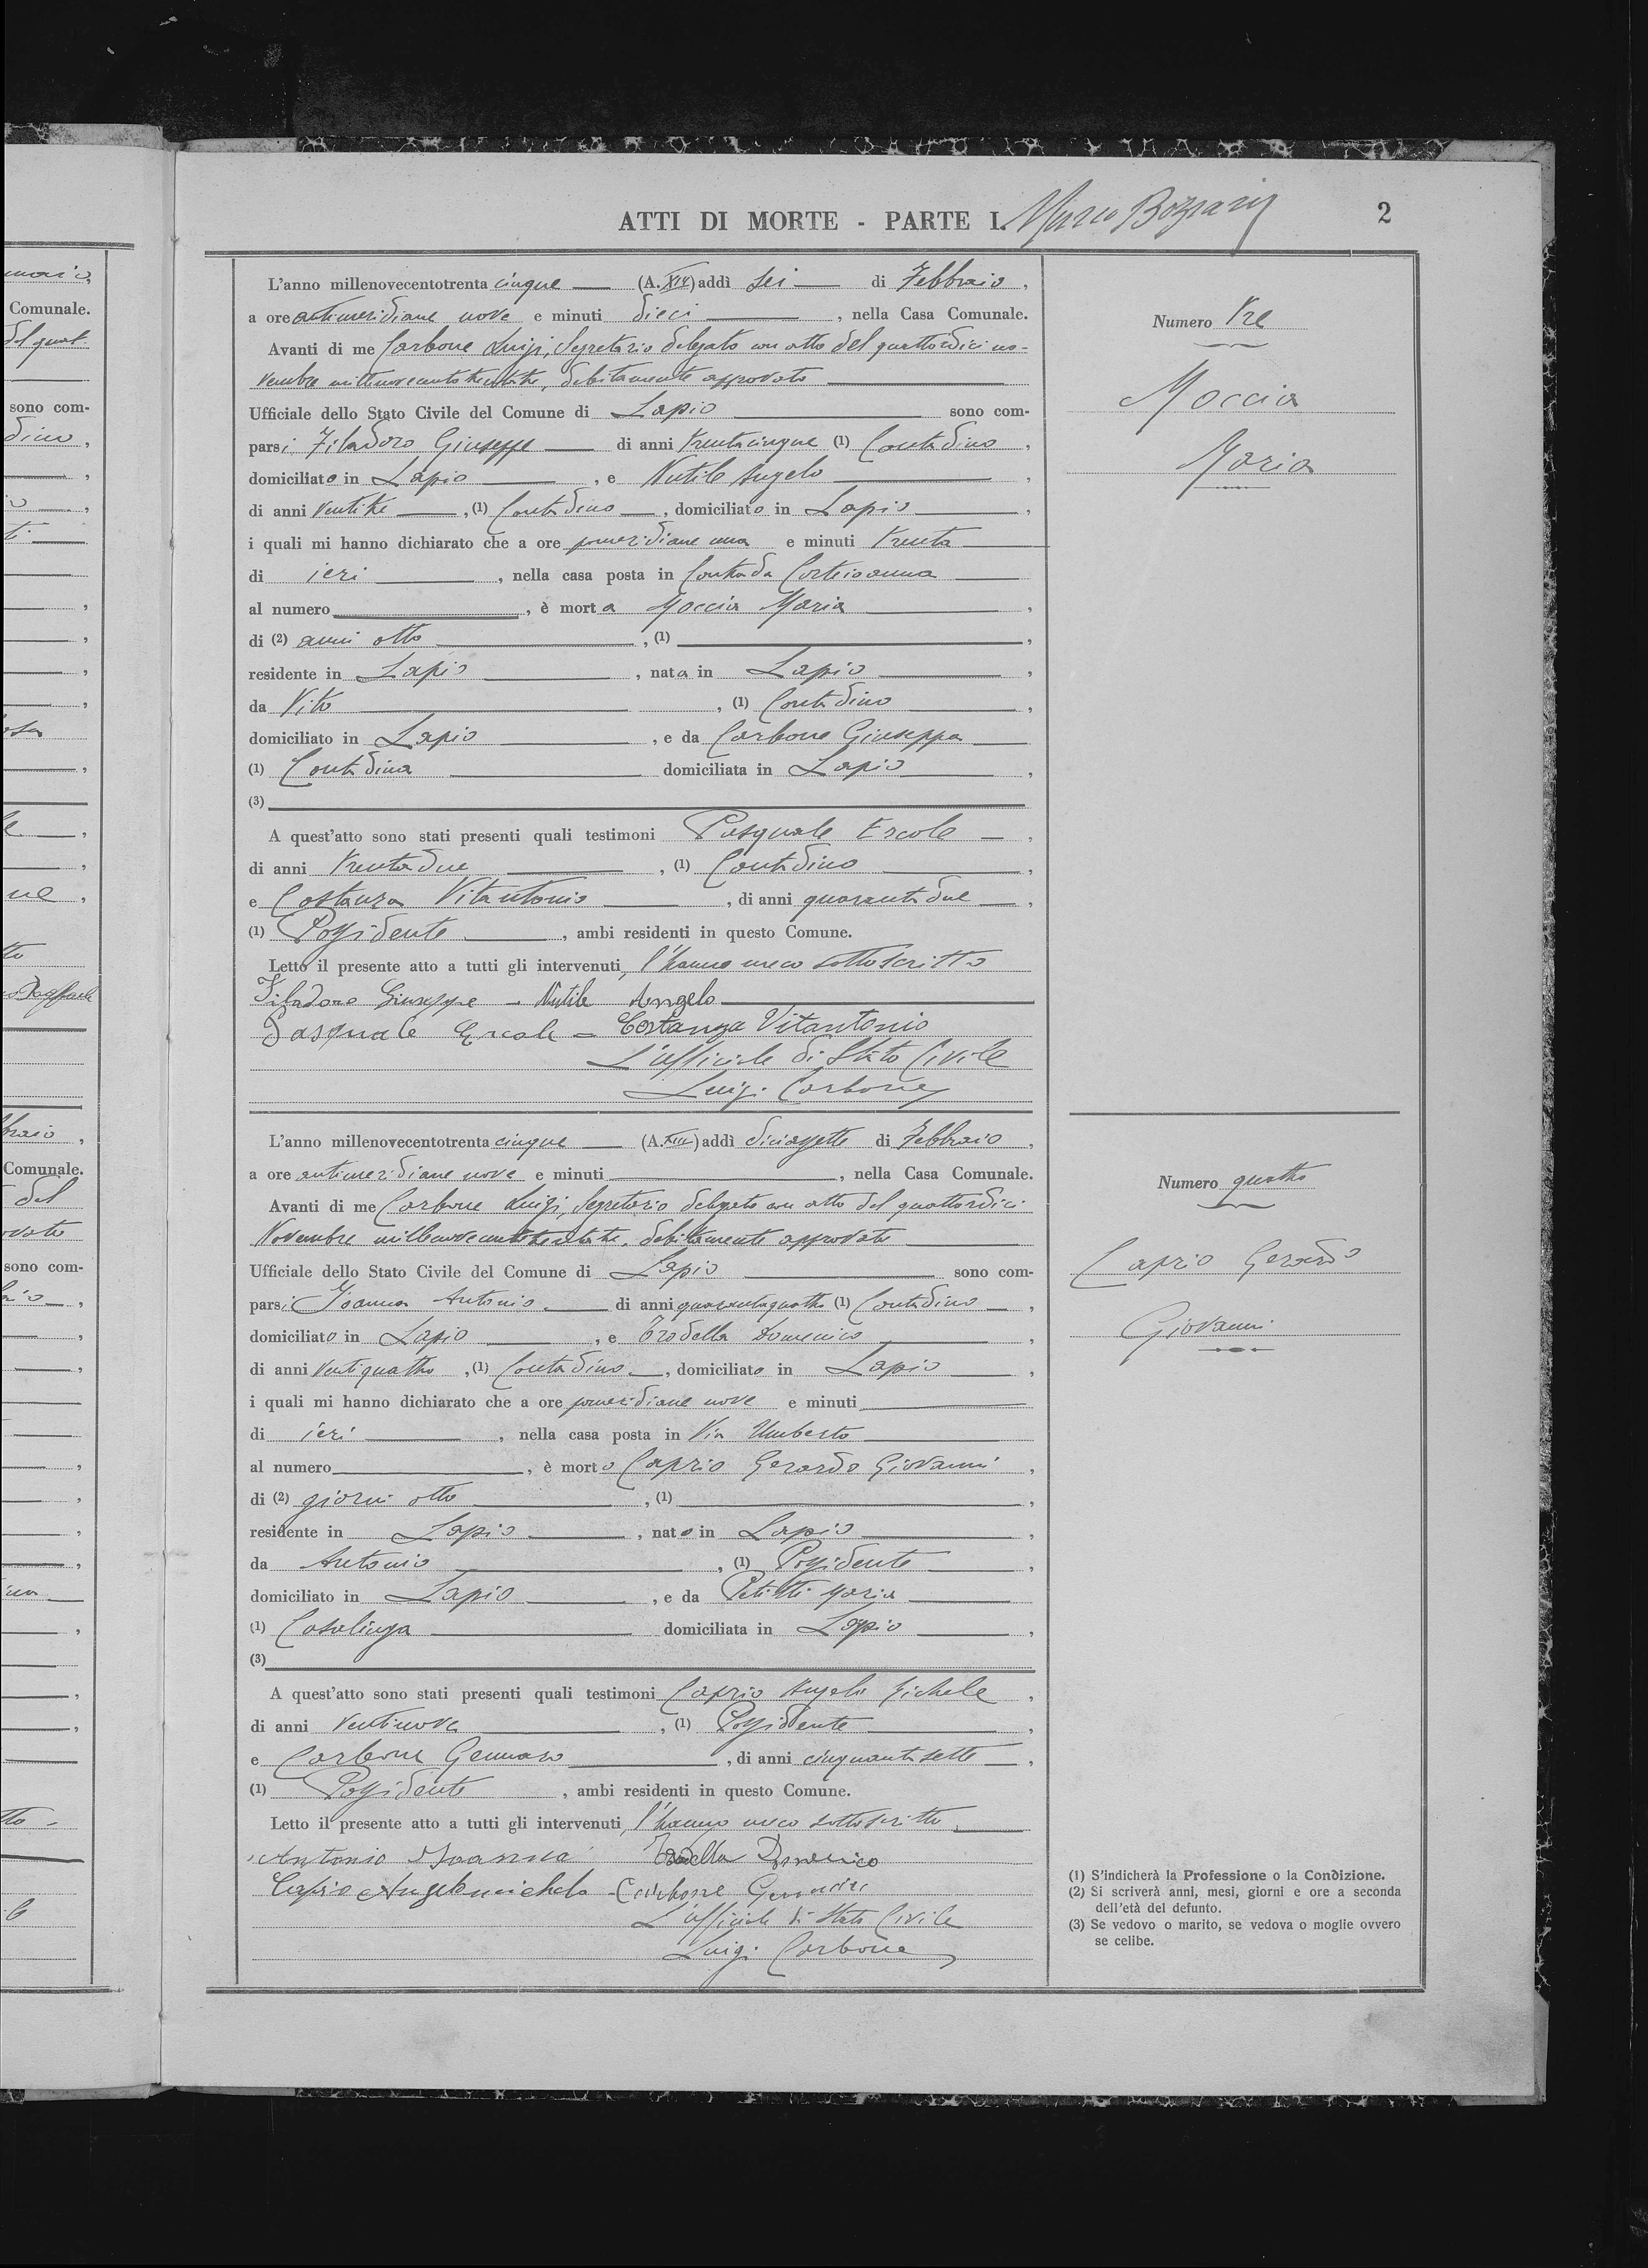 ATTI DI MORTE - PARTE I.
2
L'anno millenovecentotrenta cinque (A. XIII) addì sei di Febbraio,
a ore antimeridiane nove e minuti dieci, nella Casa Comunale.
Avanti di me Carbone Luigi, Segretario delegato con atto del quattordici no-
vembre millenovecentotrentatre, debitamente approvato
Ufficiale dello Stato Civile del Comune di Lapio sono com-
parsi Filadoro Giuseppe di anni trentacinque (1) Contadino,
domiciliato in Lapio, e Nutile Angelo,
di anni ventitre, (1) Contadino, domiciliato in Lapio,
i quali mi hanno dichiarato che a ore pomeridiane una e minuti trenta
di ieri, nella casa posta in Contrada
al numero, è morta Moccia Maria,
di (2) anni otto, (1),
residente in Lapio, nata in Lapio,
da Vito, (1) Contadino,
domiciliato in Lapio, e da Carbone Giuseppa
(1) Contadina domiciliata in Lapio,
(3)
A quest'atto sono stati presenti quali testimoni Pasquale Ercole,
di anni trentadue, (1) Contadino,
e Costanza Vitantonio, di anni quarantadue,
(1) Possidente, ambi residenti in questo Comune.
Letto il presente atto a tutti gli intervenuti, l'hanno meco sottoscritto
Filadoro Giuseppe - Nutile Angelo
Pasquale Ercole - Costanza Vitantonio
L'ufficiale di Stato Civile
Luigi Carbone
Numero tre
Moccia
Maria
L'anno millenovecentotrenta cinque (A. XIII) addì diciassette di Febbraio,
a ore antimeridiane nove e minuti, nella Casa Comunale.
Avanti di me Carbone Luigi, Segretario delegato con atto del quattordici
Novembre millenovecentotrentatre, debitamente approvato
Ufficiale dello Stato Civile del Comune di Lapio sono com-
parsi Ioanna Antonio di anni quarantaquattro (1) Contadino,
domiciliato in Lapio, e Trodella Domenico,
di anni ventiquattro, (1) Contadino, domiciliato in Lapio,
i quali mi hanno dichiarato che a ore pomeridiane nove e minuti
di ieri, nella casa posta in Via Umberto
al numero, è morto Caprio Gerardo Giovanni,
di (2) giorni otto, (1),
residente in Lapio, nato in Lapio,
da Antonio, (1) Possidente,
domiciliato in Lapio, e da Petitti Maria
(1) Casalinga domiciliata in Lapio,
(3)
A quest'atto sono stati presenti quali testimoni Caprio Angelo Michele,
di anni ventinove, (1) Possidente,
e Carbone Gennaro, di anni cinquantasette,
(1) Possidente, ambi residenti in questo Comune.
Letto il presente atto a tutti gli intervenuti, l'hanno meco sottoscritto
Antonio Ioanna Trodella Domenico
Caprio Angelomichele - Carbone Gennaro
L'ufficiale di Stato Civile
Luigi Carbone
Numero quattro
Caprio Gerardo
Giovanni
(1) S'indicherà la Professione o la Condizione.
(2) Si scriverà anni, mesi, giorni e ore a seconda
dell'età del defunto.
(3) Se vedovo o marito, se vedova o moglie ovvero
se celibe.